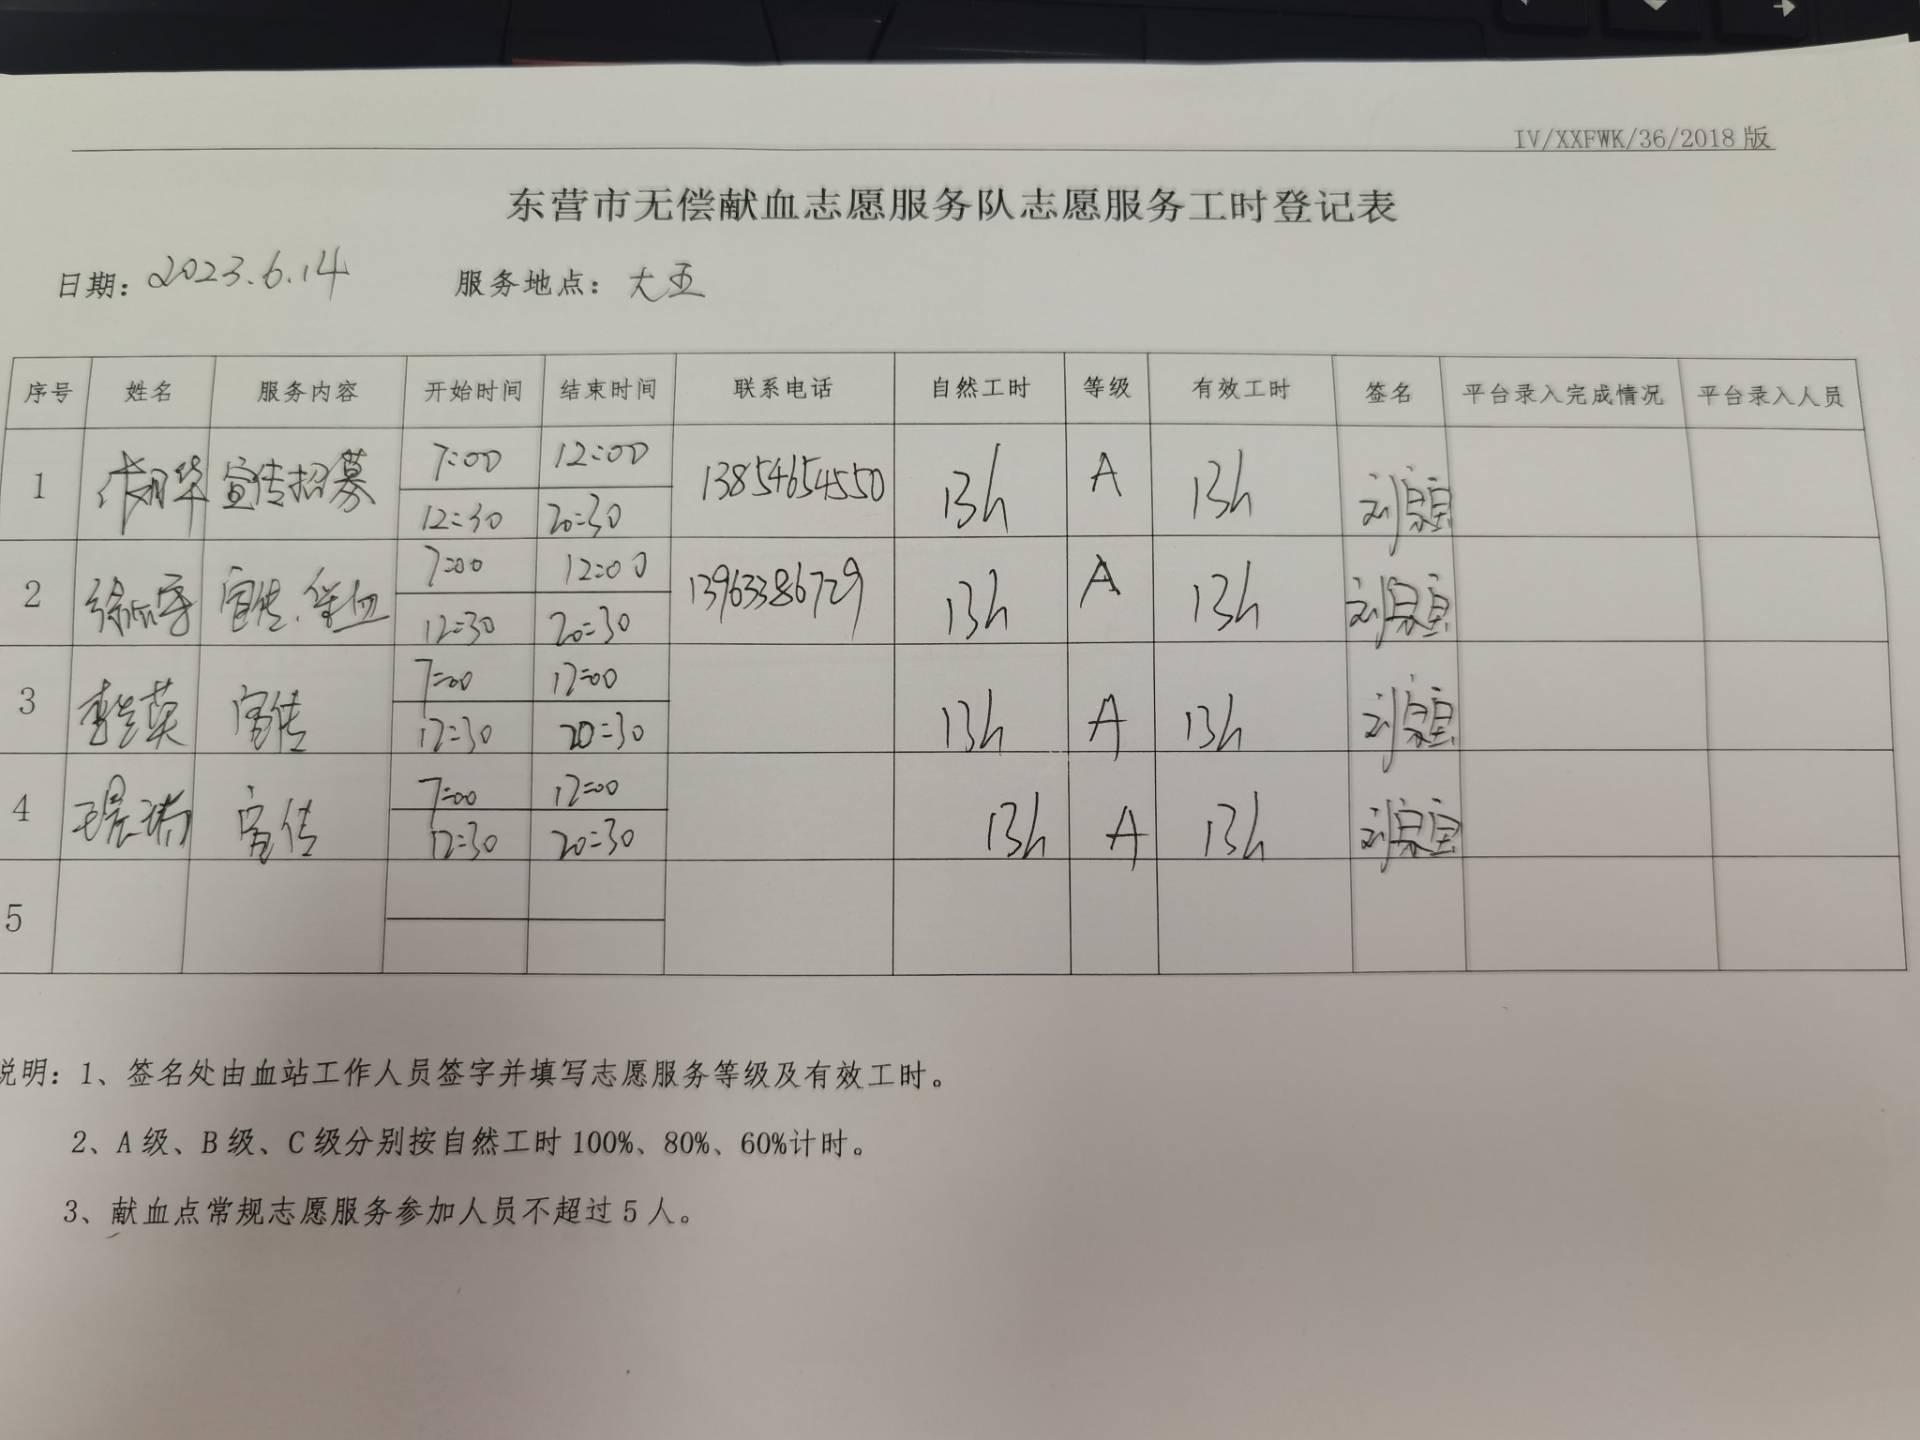 IV/XXFWK/36/2018 版
东营市无偿献血志愿服务队志愿服务工时登记表
日期：2023.6.14 服务地点：大王
序号 姓名 服务内容 开始时间 结束时间 联系电话 自然工时 等级 有效工时 签名 平台录入完成情况 平台录入人员
1 宣传招募 7:00 12:00 13854654550 13h A 13h
12:30 20:30
2 宣传、 7:00 12:00 13963386729 13h A 13h
12:30 20:30
3 宣传 7:00 12:00 13h A 13h
12:30 20:30
4 宣传 7:00 12:00 13h A 13h
12:30 20:30
5
说明：1、签名处由血站工作人员签字并填写志愿服务等级及有效工时。
2、A 级、B 级、C 级分别按自然工时 100%、80%、60%计时。
3、献血点常规志愿服务参加人员不超过 5 人。